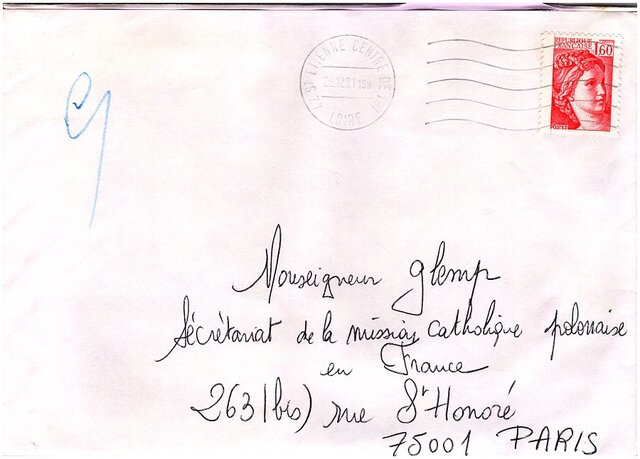 ST ETIENNE CENTRE
12.81 18H
LOIRE
REPUBLIQUE
FRANÇAISE
1,60
POSTES
Monseigneur Glemp
Sécrétariat de la mission catholique polonaise
en France
263 (bis) rue St Honoré
75001 PARIS